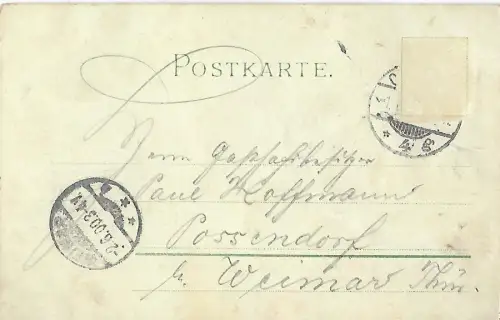 POSTKARTE.
Herrn Gasthofbesitzer
Paul Hoffmann
Possendorf
b. Weimar Thür.
-2.6.00.3-4N
4-8